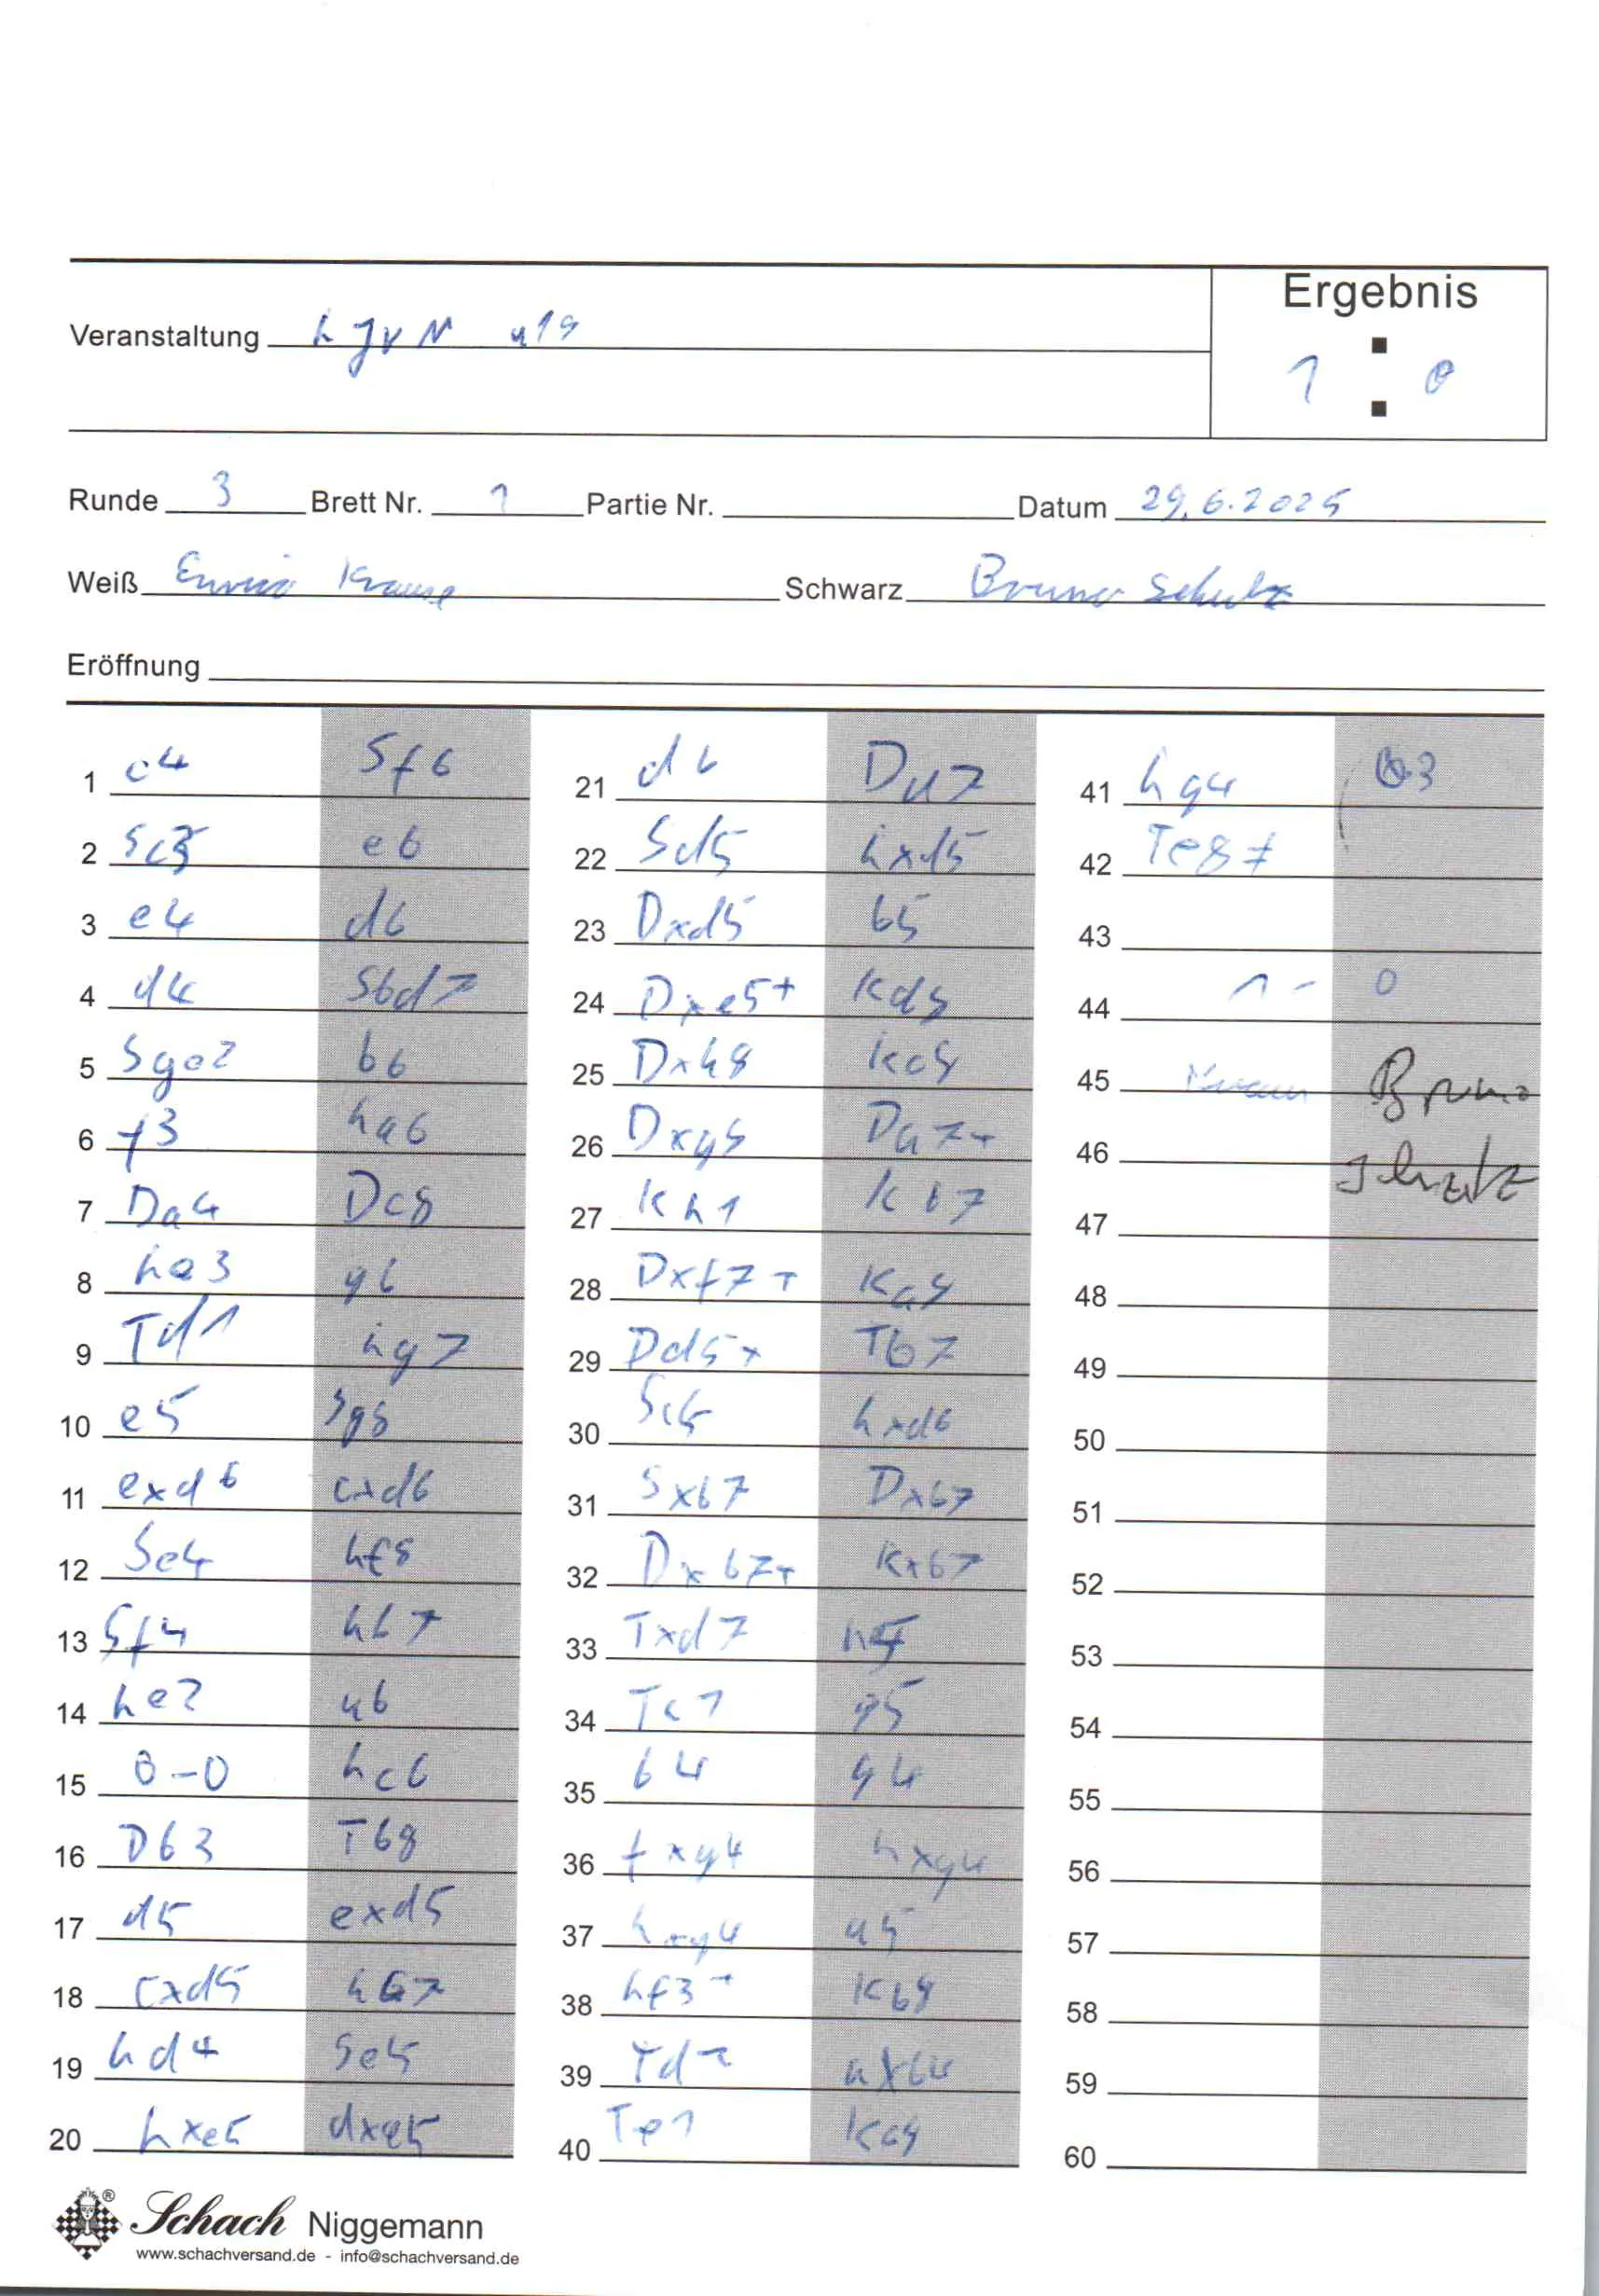 Ergebnis
Veranstaltung
u19
1 : 0
Runde 3 Brett Nr. 1 Partie Nr. Datum 29.6.2025
Weiß Krause Schwarz Bruno Schulz
Eröffnung
1 c4 Sf6
2 Sc3 e6
3 e4 d6
4 d4 Sbd7
5 Sge2 b6
6 f3 ha6
7 Da4 Dc8
8 he3 g6
9 Td1 hg7
10 e5 Sg8
11 exd6 cxd6
12 Se4 hf8
13 Sf4 hb7
14 he2 a6
15 0-0 hc6
16 Db3 Tb8
17 d5 exd5
18 cxd5 hb7
19 hd4 Se5
20 hxe5 dxe5
21 d6 Da7
22 Sd5 hxd5
23 Dxd5 b5
24 Dxe5+ Kd8
25 Dxh8 Kc8
26 Dxg8 Da7+
27 Kh1 Kb7
28 Dxf7+ Ka8
29 Dd5+ Tb7
30 Sc5 hxd6
31 Sxb7 Dxb7
32 Dxb7+ Kxb7
33 Txd7
34 Tc1 g5
35 b4 g4
36 fxg4 hxg4
37 hxg4 a5
38 hf3+ Kb8
39 axb4
40 Te1 Kc8
41 hg4 b3
42 Te8#
43
44 1 - 0
45 Bruno
46 Schulz
47
48
49
50
51
52
53
54
55
56
57
58
59
60
® Schach Niggemann
www.schachversand.de - info@schachversand.de